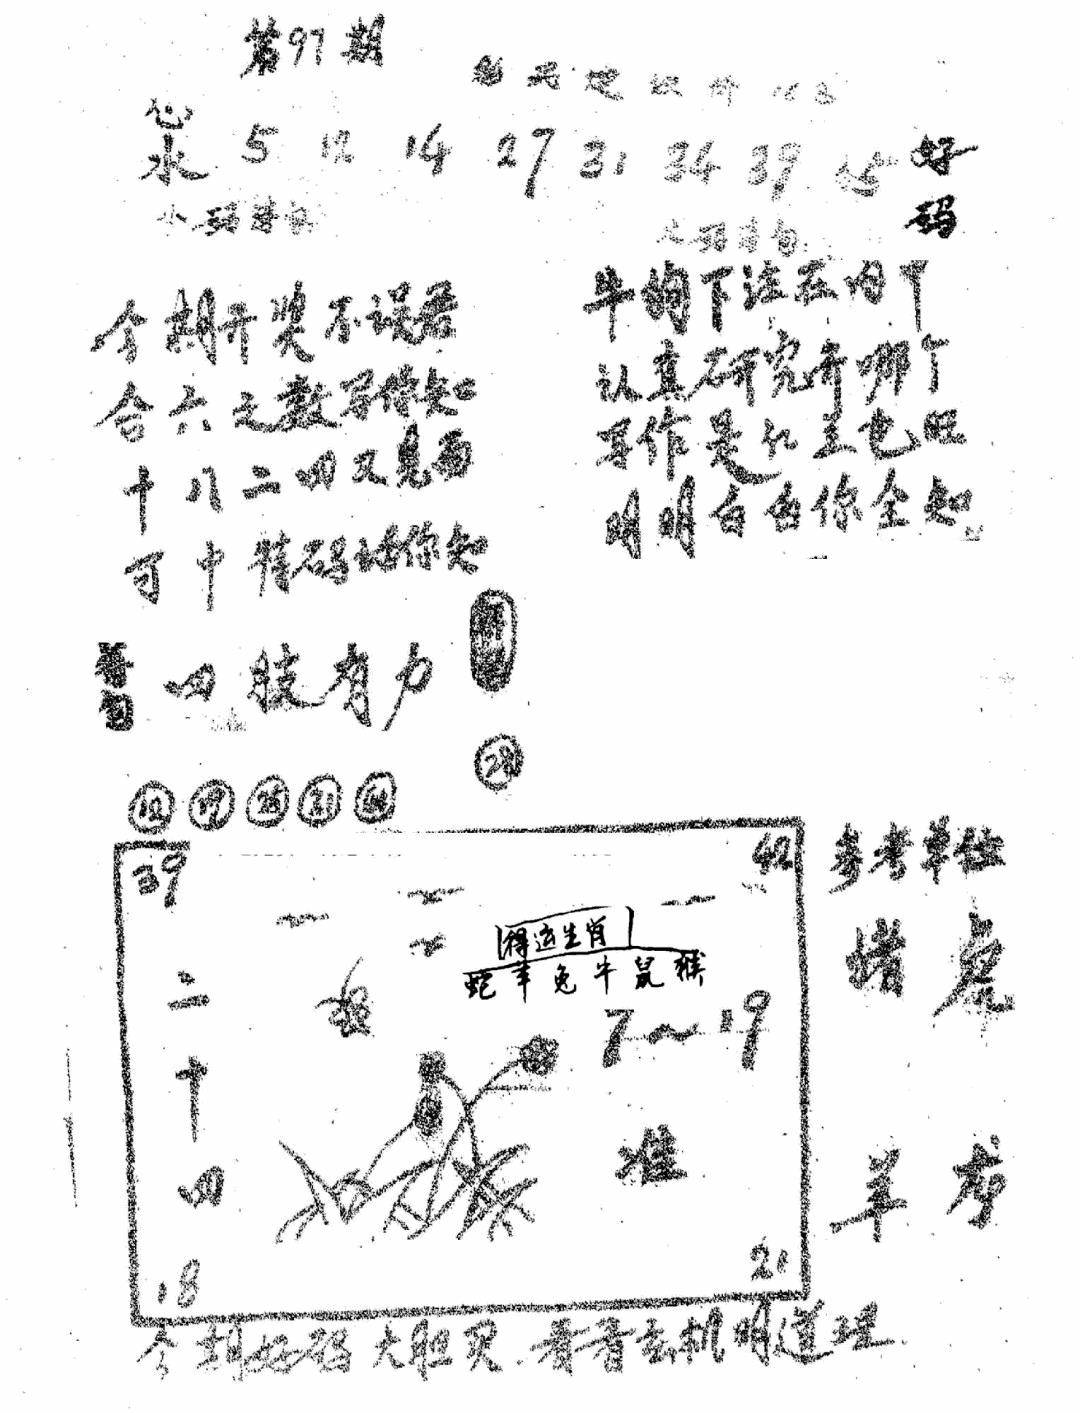 第97期
心水 5 12 14 27 31 34 39 好码
今期开奖不误君
合六之数写你知
十八二四又见面
可中特码话你知
牛狗下注在内个
认真研究开哪个
写作是仁主也旺
明明白白你全知
四肢有力
28
12 19 25 31 44
39 42
得运生肖
蛇羊兔牛鼠猴
二十四
7~19
准
18 21
参考单位
猪虎
羊龙
今期好码大胆买.看看玄机明道理.